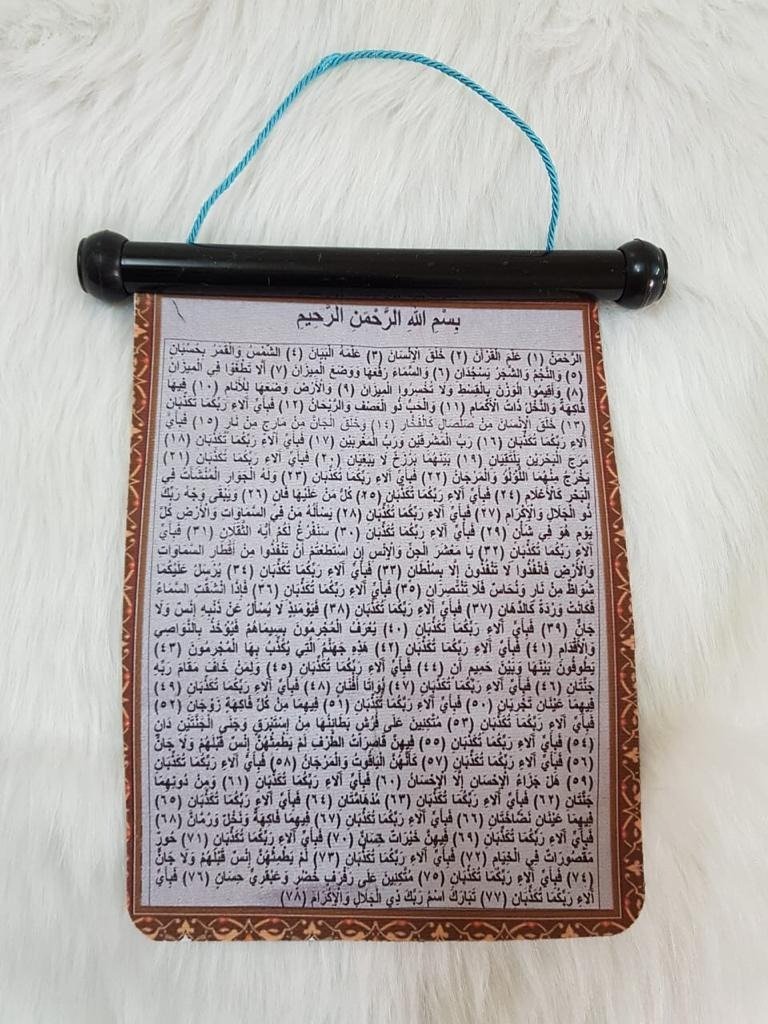 بِسْمِ اللَّهِ الرَّحْمَنِ الرَّحِيمِ
الرَّحْمَنُ (١) عَلَّمَ القُرْآنَ (٢) خَلَقَ الْإِنْسَانَ (٣) عَلَّمَهُ الْبَيَانَ (٤) الشَّمْسُ وَالْقَمَرُ بِحُسْبَانٍ
(٥) وَالنَّجْمُ وَالشَّجَرُ يَسْجُدَانِ (٦) وَالسَّمَاءَ رَفَعَهَا وَوَضَعَ الْمِيزَانَ (٧) أَلَّا تَطْغَوْا فِي الْمِيزَانِ
(٨) وَأَقِيمُوا الْوَزْنَ بِالْقِسْطِ وَلَا تُخْسِرُوا الْمِيزَانَ (٩) وَالْأَرْضَ وَضَعَهَا لِلْأَنَامِ (١٠) فِيهَا
فَاكِهَةٌ وَالنَّخْلُ ذَاتُ الْأَكْمَامِ (١١) وَالْحَبُّ ذُو الْعَصْفِ وَالرَّيْحَانُ (١٢) فَبِأَيِّ آلَاءِ رَبِّكُمَا تُكَذِّبَانِ
(١٣) خَلَقَ الْإِنْسَانَ مِنْ صَلْصَالٍ كَالْفَخَّارِ (١٤) وَخَلَقَ الْجَانَّ مِنْ مَارِجٍ مِنْ نَارٍ (١٥) فَبِأَيِّ
آلَاءِ رَبِّكُمَا تُكَذِّبَانِ (١٦) رَبُّ الْمَشْرِقَيْنِ وَرَبُّ الْمَغْرِبَيْنِ (١٧) فَبِأَيِّ آلَاءِ رَبِّكُمَا تُكَذِّبَانِ (١٨)
مَرَجَ الْبَحْرَيْنِ يَلْتَقِيَانِ (١٩) بَيْنَهُمَا بَرْزَخٌ لَا يَبْغِيَانِ (٢٠) فَبِأَيِّ آلَاءِ رَبِّكُمَا تُكَذِّبَانِ (٢١)
يَخْرُجُ مِنْهُمَا اللُّؤْلُؤُ وَالْمَرْجَانُ (٢٢) فَبِأَيِّ آلَاءِ رَبِّكُمَا تُكَذِّبَانِ (٢٣) وَلَهُ الْجَوَارِ الْمُنْشَآتُ فِي
الْبَحْرِ كَالْأَعْلَامِ (٢٤) فَبِأَيِّ آلَاءِ رَبِّكُمَا تُكَذِّبَانِ (٢٥) كُلُّ مَنْ عَلَيْهَا فَانٍ (٢٦) وَيَبْقَى وَجْهُ رَبِّكَ
ذُو الْجَلَالِ وَالْإِكْرَامِ (٢٧) فَبِأَيِّ آلَاءِ رَبِّكُمَا تُكَذِّبَانِ (٢٨) يَسْأَلُهُ مَنْ فِي السَّمَاوَاتِ وَالْأَرْضِ كُلَّ
يَوْمٍ هُوَ فِي شَأْنٍ (٢٩) فَبِأَيِّ آلَاءِ رَبِّكُمَا تُكَذِّبَانِ (٣٠) سَنَفْرُغُ لَكُمْ أَيُّهَ الثَّقَلَانِ (٣١) فَبِأَيِّ
آلَاءِ رَبِّكُمَا تُكَذِّبَانِ (٣٢) يَا مَعْشَرَ الْجِنِّ وَالْإِنْسِ إِنِ اسْتَطَعْتُمْ أَنْ تَنْفُذُوا مِنْ أَقْطَارِ السَّمَاوَاتِ
وَالْأَرْضِ فَانْفُذُوا لَا تَنْفُذُونَ إِلَّا بِسُلْطَانٍ (٣٣) فَبِأَيِّ آلَاءِ رَبِّكُمَا تُكَذِّبَانِ (٣٤) يُرْسَلُ عَلَيْكُمَا
شُوَاظٌ مِنْ نَارٍ وَنُحَاسٌ فَلَا تَنْتَصِرَانِ (٣٥) فَبِأَيِّ آلَاءِ رَبِّكُمَا تُكَذِّبَانِ (٣٦) فَإِذَا انْشَقَّتِ السَّمَاءُ
فَكَانَتْ وَرْدَةً كَالدِّهَانِ (٣٧) فَبِأَيِّ آلَاءِ رَبِّكُمَا تُكَذِّبَانِ (٣٨) فَيَوْمَئِذٍ لَا يُسْأَلُ عَنْ ذَنْبِهِ إِنْسٌ وَلَا
جَانٌّ (٣٩) فَبِأَيِّ آلَاءِ رَبِّكُمَا تُكَذِّبَانِ (٤٠) يُعْرَفُ الْمُجْرِمُونَ بِسِيمَاهُمْ فَيُؤْخَذُ بِالنَّوَاصِي
وَالْأَقْدَامِ (٤١) فَبِأَيِّ آلَاءِ رَبِّكُمَا تُكَذِّبَانِ (٤٢) هَذِهِ جَهَنَّمُ الَّتِي يُكَذِّبُ بِهَا الْمُجْرِمُونَ (٤٣)
يَطُوفُونَ بَيْنَهَا وَبَيْنَ حَمِيمٍ آنٍ (٤٤) فَبِأَيِّ آلَاءِ رَبِّكُمَا تُكَذِّبَانِ (٤٥) وَلِمَنْ خَافَ مَقَامَ رَبِّهِ
جَنَّتَانِ (٤٦) فَبِأَيِّ آلَاءِ رَبِّكُمَا تُكَذِّبَانِ (٤٧) ذَوَاتَا أَفْنَانٍ (٤٨) فَبِأَيِّ آلَاءِ رَبِّكُمَا تُكَذِّبَانِ (٤٩)
فِيهِمَا عَيْنَانِ تَجْرِيَانِ (٥٠) فَبِأَيِّ آلَاءِ رَبِّكُمَا تُكَذِّبَانِ (٥١) فِيهِمَا مِنْ كُلِّ فَاكِهَةٍ زَوْجَانِ (٥٢)
فَبِأَيِّ آلَاءِ رَبِّكُمَا تُكَذِّبَانِ (٥٣) مُتَّكِئِينَ عَلَى فُرُشٍ بَطَائِنُهَا مِنْ إِسْتَبْرَقٍ وَجَنَى الْجَنَّتَيْنِ دَانٍ
(٥٤) فَبِأَيِّ آلَاءِ رَبِّكُمَا تُكَذِّبَانِ (٥٥) فِيهِنَّ قَاصِرَاتُ الطَّرْفِ لَمْ يَطْمِثْهُنَّ إِنْسٌ قَبْلَهُمْ وَلَا جَانٌّ
(٥٦) فَبِأَيِّ آلَاءِ رَبِّكُمَا تُكَذِّبَانِ (٥٧) كَأَنَّهُنَّ الْيَاقُوتُ وَالْمَرْجَانُ (٥٨) فَبِأَيِّ آلَاءِ رَبِّكُمَا تُكَذِّبَانِ
(٥٩) هَلْ جَزَاءُ الْإِحْسَانِ إِلَّا الْإِحْسَانُ (٦٠) فَبِأَيِّ آلَاءِ رَبِّكُمَا تُكَذِّبَانِ (٦١) وَمِنْ دُونِهِمَا
جَنَّتَانِ (٦٢) فَبِأَيِّ آلَاءِ رَبِّكُمَا تُكَذِّبَانِ (٦٣) مُدْهَامَّتَانِ (٦٤) فَبِأَيِّ آلَاءِ رَبِّكُمَا تُكَذِّبَانِ (٦٥)
فِيهِمَا عَيْنَانِ نَضَّاخَتَانِ (٦٦) فَبِأَيِّ آلَاءِ رَبِّكُمَا تُكَذِّبَانِ (٦٧) فِيهِمَا فَاكِهَةٌ وَنَخْلٌ وَرُمَّانٌ (٦٨)
فَبِأَيِّ آلَاءِ رَبِّكُمَا تُكَذِّبَانِ (٦٩) فِيهِنَّ خَيْرَاتٌ حِسَانٌ (٧٠) فَبِأَيِّ آلَاءِ رَبِّكُمَا تُكَذِّبَانِ (٧١) حُورٌ
مَقْصُورَاتٌ فِي الْخِيَامِ (٧٢) فَبِأَيِّ آلَاءِ رَبِّكُمَا تُكَذِّبَانِ (٧٣) لَمْ يَطْمِثْهُنَّ إِنْسٌ قَبْلَهُمْ وَلَا جَانٌّ
(٧٤) فَبِأَيِّ آلَاءِ رَبِّكُمَا تُكَذِّبَانِ (٧٥) مُتَّكِئِينَ عَلَى رَفْرَفٍ خُضْرٍ وَعَبْقَرِيٍّ حِسَانٍ (٧٦) فَبِأَيِّ
آلَاءِ رَبِّكُمَا تُكَذِّبَانِ (٧٧) تَبَارَكَ اسْمُ رَبِّكَ ذِي الْجَلَالِ وَالْإِكْرَامِ (٧٨)